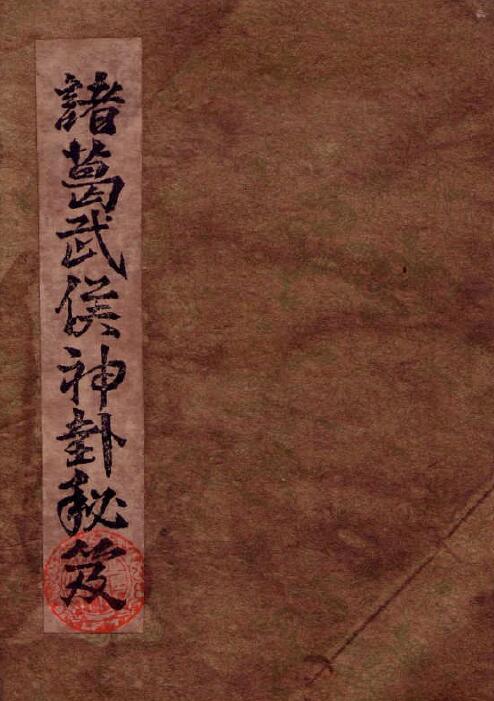 諸葛武侯神卦秘笈